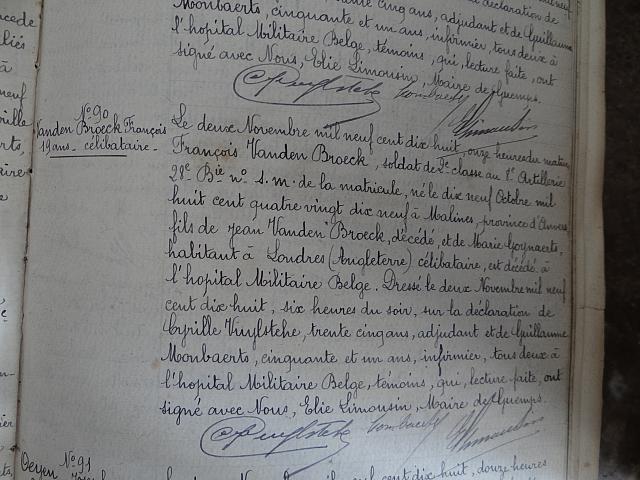 Monbaerts, cinquante et un ans, infirmier, tous deux à
l'hopital Militaire Belge, témoins, qui, lecture faite, ont
signé avec Nous, Elie Limousin, Maire de Guemps.
N° 90
Vanden Broeck François
19 ans - célibataire -
Le deux Novembre mil neuf cent dix huit, onze heures du matin
François Vanden Broeck, soldat de 2e classe au 1e Artillerie
28e Bie n° s.m. de la matricule, né le dix neuf Octobre mil
huit cent quatre vingt dix neuf à Malines, province d'Anvers
fils de Jean Vanden Broeck, décédé, et de Marie Goynaerts,
habitant à Londres (Angleterre) célibataire, est décédé à
l'hopital Militaire Belge. Dressé le deux Novembre mil neuf
cent dix huit, six heures du soir, sur la déclaration de
Cyrille Vuylsteke, trente cinq ans, adjudant et de Guillaume
Monbaerts, cinquante et un ans, infirmier, tous deux à
l'hopital Militaire Belge, témoins, qui, lecture faite, ont
signé avec Nous, Elie Limousin, Maire de Guemps.
N° 91
cent dix huit, douze heures